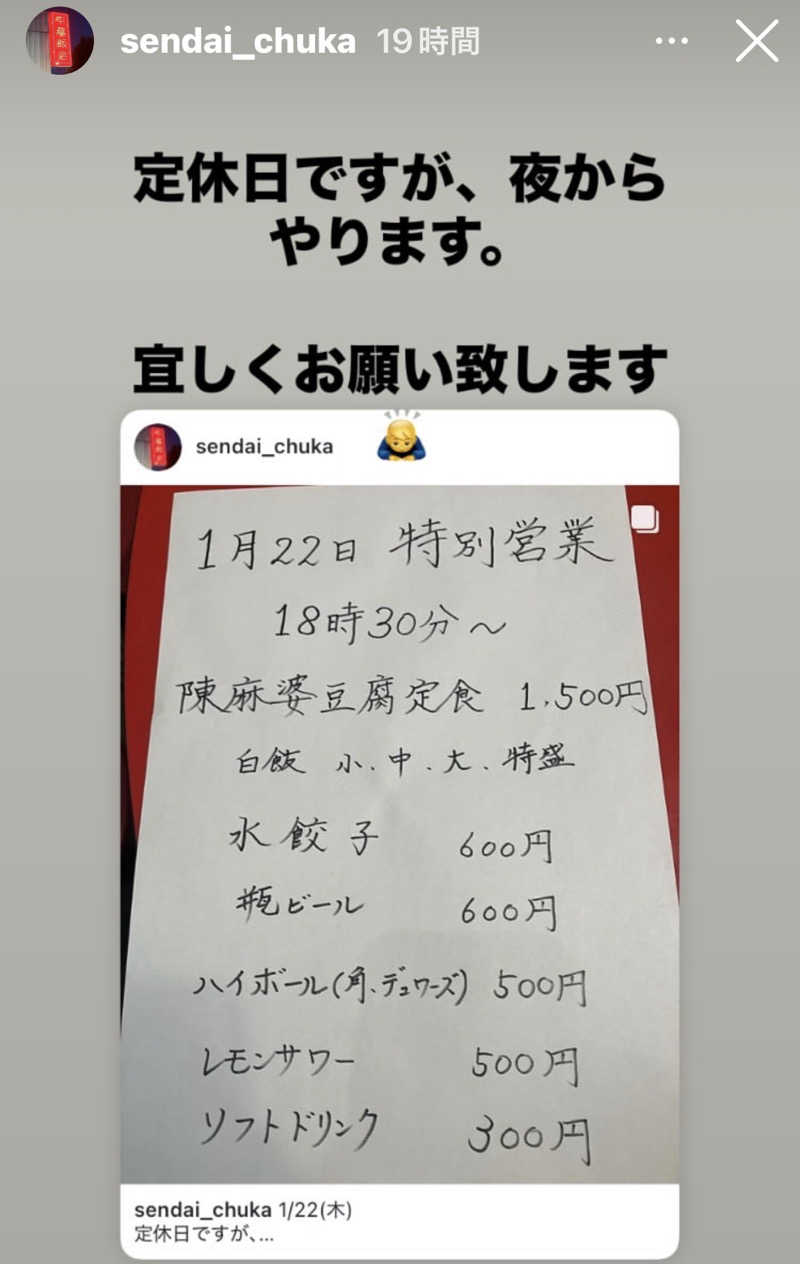 sendai_chuka 19時間
定休日ですが、夜から
やります。
宜しくお願い致します
sendai_chuka
1月22日 特別営業
18時30分～
陳麻婆豆腐定食 1,500円
白飯 小.中.大.特盛
水餃子 600円
瓶ビール 600円
ハイボール(角、デュワーズ) 500円
レモンサワー 500円
ソフトドリンク 300円
sendai_chuka 1/22(木)
定休日ですが、...